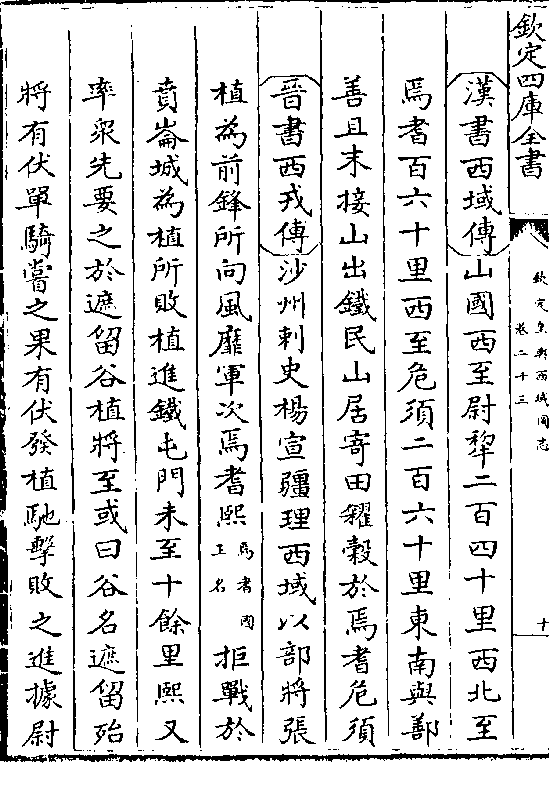 欽定四庫全書
欽定皇輿西域圖志
卷二十三
十
漢書西域傳山國西至尉犂二百四十里西北至
焉耆百六十里西至危須二百六十里東南與鄯
善且末接山出鐵民山居寄田糴穀於焉耆危須
晉書西戎傳沙州刺史楊宣疆理西域以部將張
植為前鋒所向風靡軍次焉耆熙焉耆國王名拒戰於
賁崙城為植所敗植進鐵屯門未至十餘里熙又
率衆先要之於遮留谷植將至或曰谷名遮留殆
將有伏單騎嘗之果有伏發植馳擊敗之進據尉